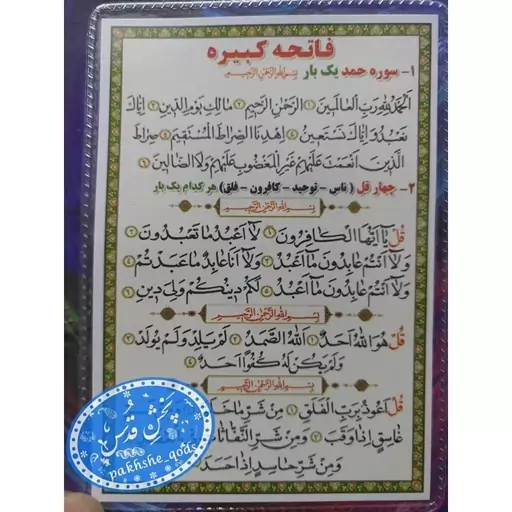 فاتحه کبیره
۱- سوره حمد یک بار بِسْمِ اللهِ الرَّحْمٰنِ الرَّحِیمِ
اَلْحَمْدُ لِلّٰهِ رَبِّ الْعَالَمِینَ ۱ الرَّحْمٰنِ الرَّحِیمِ ۲ مَالِكِ یَوْمِ الدِّینِ ۳ اِیَّاكَ
نَعْبُدُ وَ اِیَّاكَ نَسْتَعِینُ ۴ اِهْدِنَا الصِّرَاطَ الْمُسْتَقِیمَ ۵ صِرَاطَ
الَّذِینَ اَنْعَمْتَ عَلَیْهِمْ غَیْرِ الْمَغْضُوبِ عَلَیْهِمْ وَلَا الضَّالِّینَ ۶
۲- چهار قل ( ناس - توحید - کافرون - فلق) هر کدام یک بار
بِسْمِ اللهِ الرَّحْمٰنِ الرَّحِیمِ
قُلْ یَا اَیُّهَا الْكَافِرُونَ ۱ لَا اَعْبُدُ مَا تَعْبُدُونَ ۲
وَلَا اَنْتُمْ عَابِدُونَ مَا اَعْبُدُ ۳ وَلَا اَنَا عَابِدٌ مَا عَبَدْتُمْ ۴
وَلَا اَنْتُمْ عَابِدُونَ مَا اَعْبُدُ ۵ لَكُمْ دِینُكُمْ وَلِیَ دِینِ ۶
بِسْمِ اللهِ الرَّحْمٰنِ الرَّحِیمِ
قُلْ هُوَ اللهُ اَحَدٌ ۱ اَللهُ الصَّمَدُ ۲ لَمْ یَلِدْ وَلَمْ یُولَدْ ۳
وَلَمْ یَكُنْ لَهُ كُفُوًا اَحَدٌ ۴
بِسْمِ اللهِ الرَّحْمٰنِ الرَّحِیمِ
قُلْ اَعُوذُ بِرَبِّ الْفَلَقِ ۱ مِنْ شَرِّ مَا
غَاسِقٍ اِذَا وَقَبَ ۳ وَمِنْ شَرِّ
وَمِنْ شَرِّ حَاسِدٍ اِذَا حَسَدَ
پخش قدس
pakhshe_qods